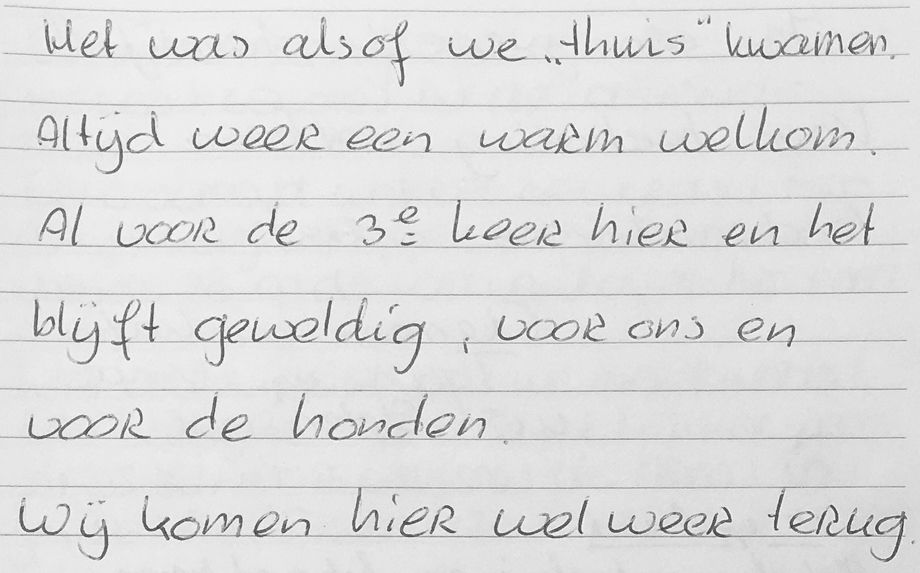 Het was alsof we „thuis" kwamen.
Altijd weer een warm welkom.
Al voor de 3e keer hier en het
blijft geweldig, voor ons en
voor de honden.
Wij komen hier wel weer terug.